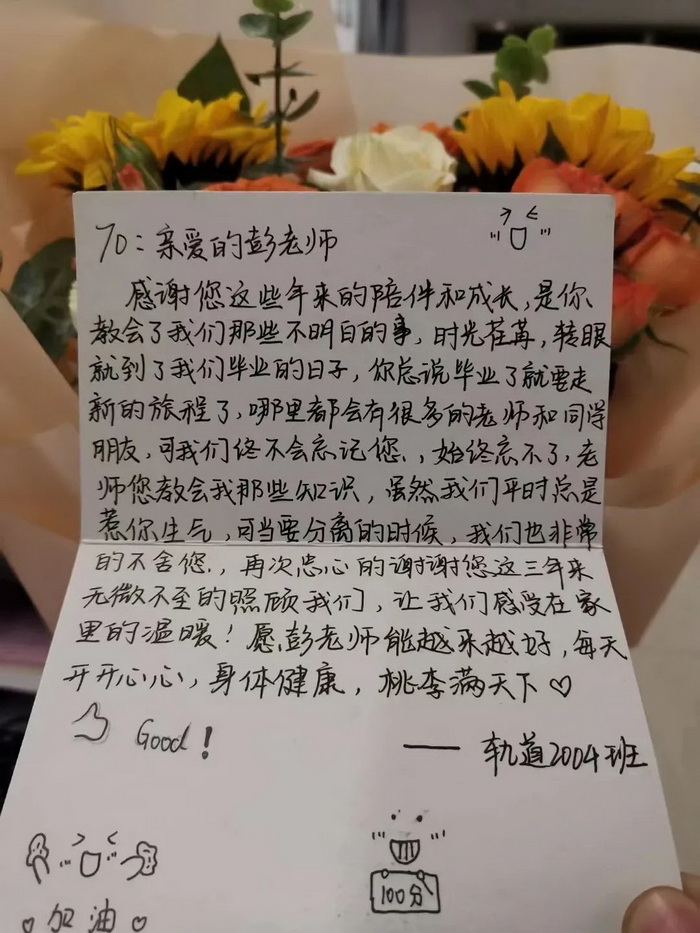 To：亲爱的彭老师
感谢您这些年来的陪伴和成长，是你
教会了我们那些不明白的事，时光荏苒，转眼
就到了我们毕业的日子，你总说毕业了就要走
新的旅程了，哪里都会有很多的老师和同学
朋友，可我们终不会忘记您，，始终忘不了，老
师您教会我那些知识，虽然我们平时总是
惹你生气，可当要分离的时候，我们也非常
的不舍您，，再次忠心的谢谢您这三年来
无微不至的照顾我们，让我们感受在家
里的温暖！愿彭老师能越来越好，每天
开开心心，身体健康，桃李满天下♡
Good！
—— 轨道2004班
100分
♡加油♡